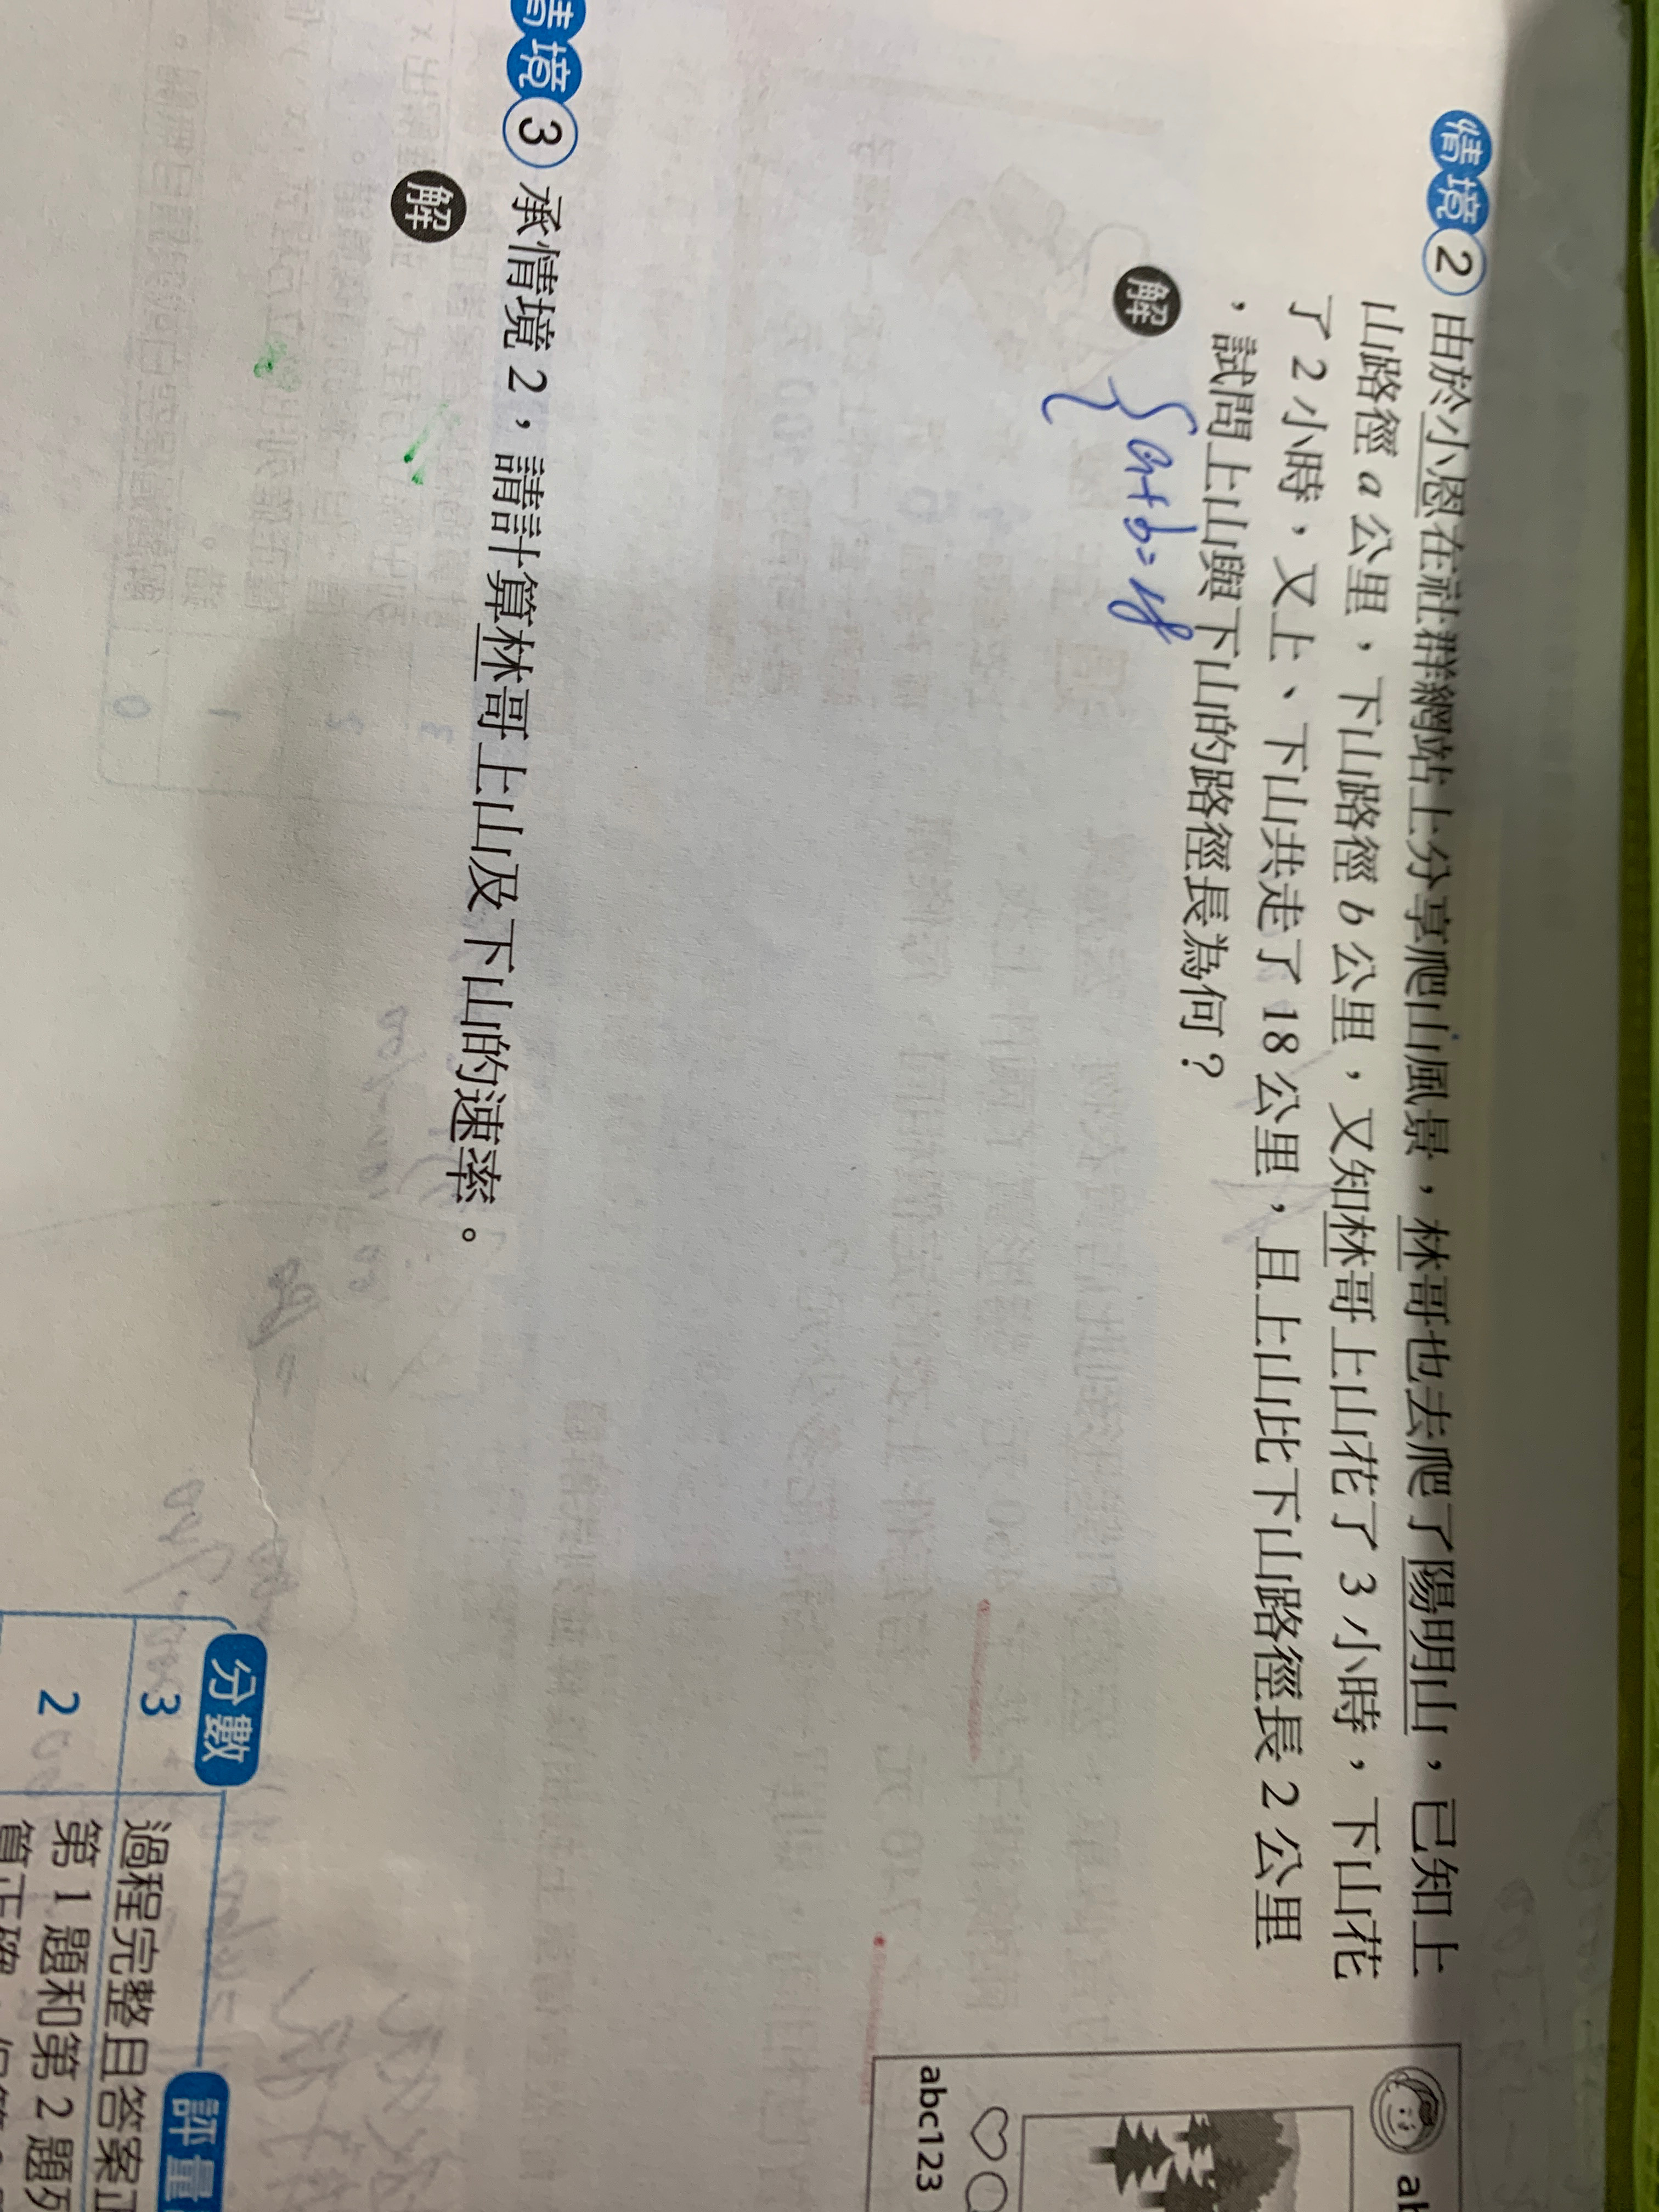 情境2 由於小恩在社群網站上分享爬山風景，林哥也去爬了陽明山，已知上
山路徑 a 公里，下山路徑 b 公里，又知林哥上山花了 3 小時，下山花
了 2 小時，又上、下山共走了 18 公里，且上山比下山路徑長 2 公里
，試問上山與下山的路徑長為何？
解
a+b=18
abc123
情境3 承情境 2，請計算林哥上山及下山的速率。
解
分數 評量
3 過程完整且答案正
2 第 1 題和第 2 題列
算正確